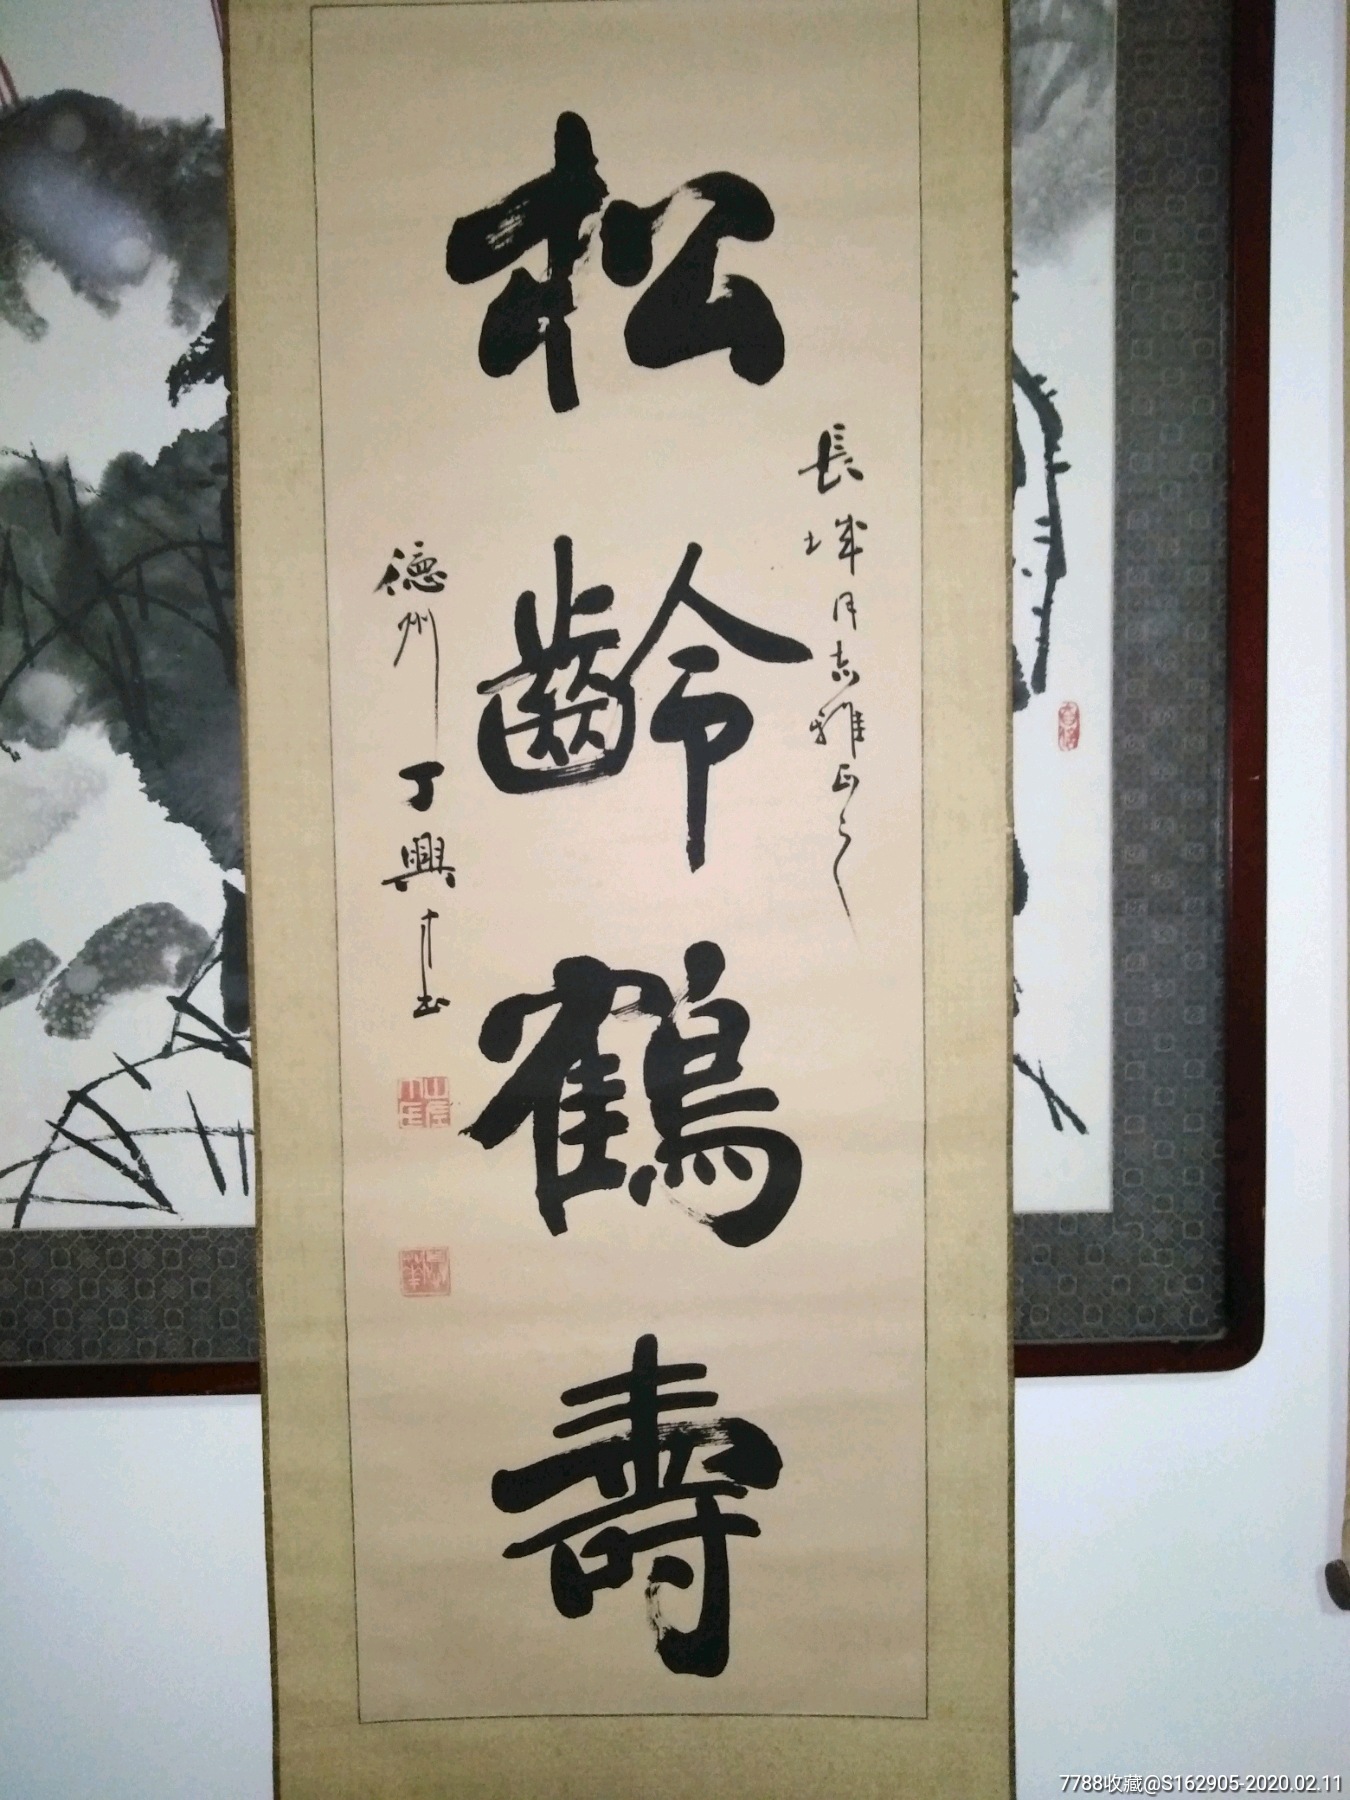 松齡鶴壽
長城同志雅正之
德州丁興才書
7788收藏@S162905-2020.02.11